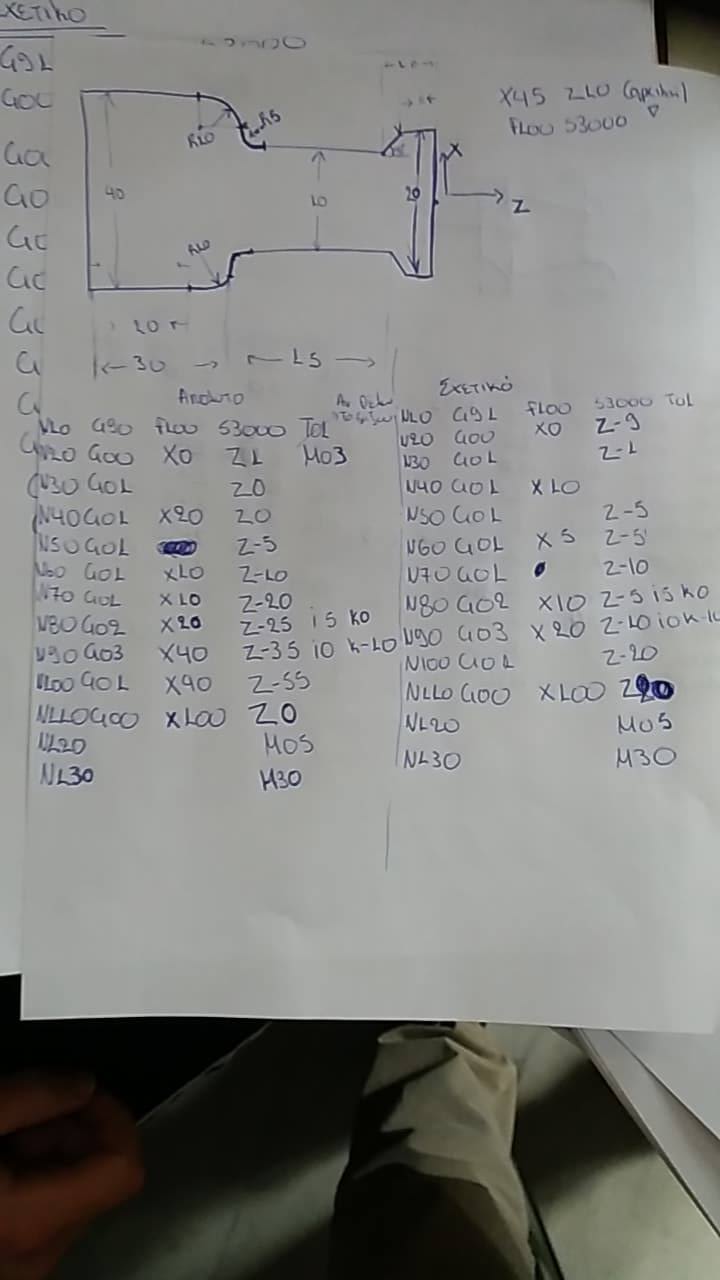 ΣΧΕΤΙΚΟ
G91
G00
X45 Z10 (αρχικη)
F100 S3000
R10
R5
40
10
20
X
Z
R10
20
30
15
Απολυτο
N10 G90 F100 S3000 T01
N20 G00 X0 Z1 M03
N30 G01 Z0
N40 G01 X20 Z0
N50 G01 Z-5
N60 G01 X10 Z-10
N70 G01 X10 Z-20
N80 G02 X20 Z-25 i5 K0
N90 G03 X40 Z-35 i0 K-10
N100 G01 X40 Z-55
N110 G00 X100 Z0
N120 M05
N130 M30
Σχετικό
N10 G91 F100 S3000 T01
N20 G00 X0 Z-9
N30 G01 Z-1
N40 G01 X10
N50 G01 Z-5
N60 G01 X5 Z-5
N70 G01 Z-10
N80 G02 X10 Z-5 i5 K0
N90 G03 X20 Z-10 i0 K-10
N100 G01 Z-20
N110 G00 X100
N120 M05
N130 M30